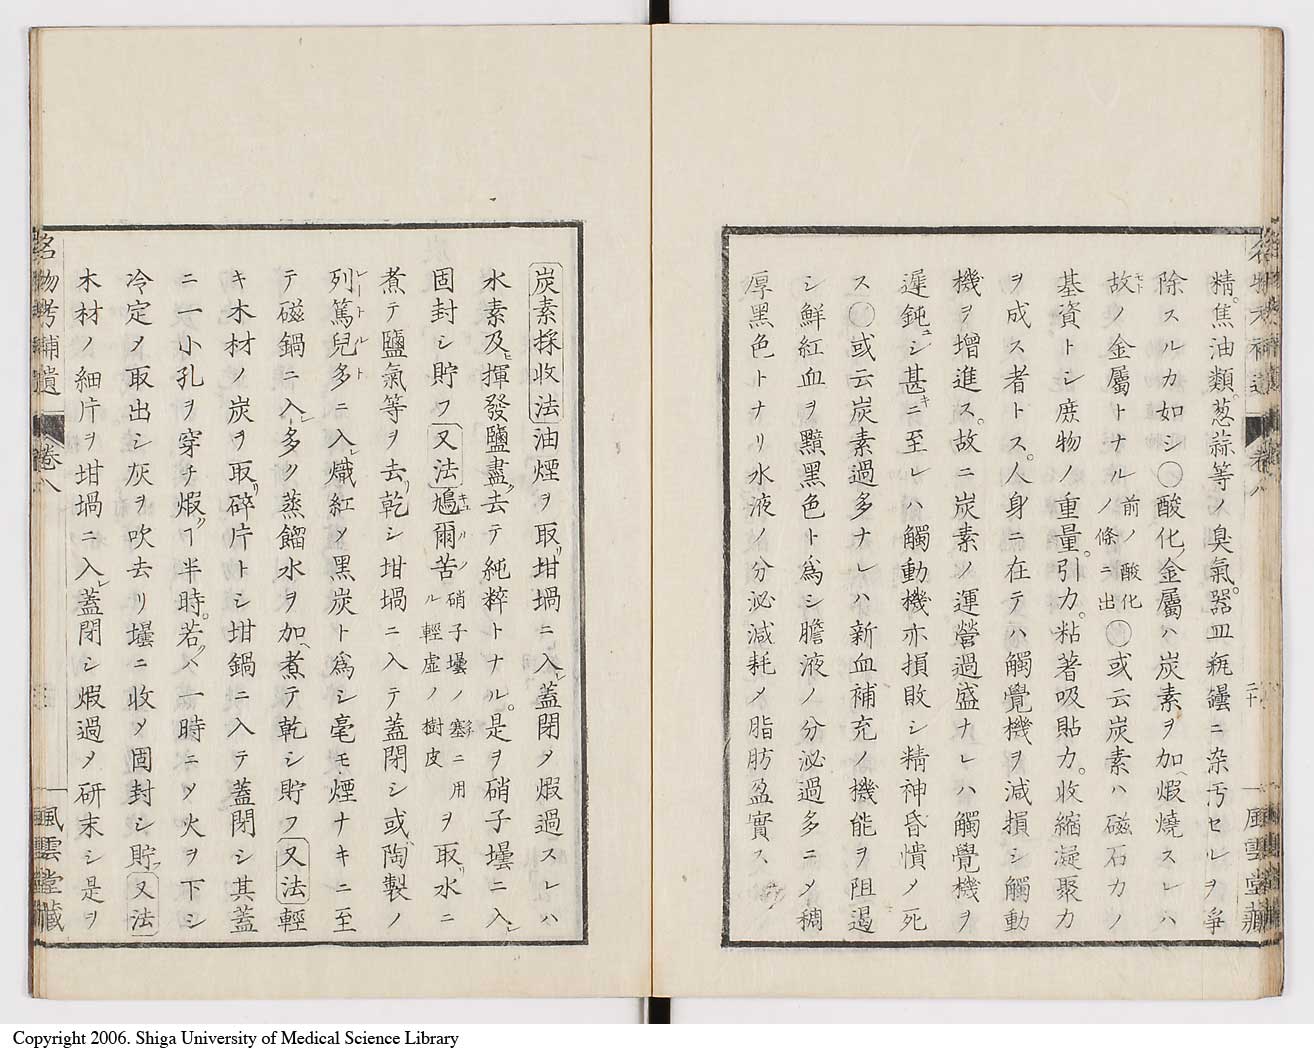 精。焦油類。葱蒜等ノ臭氣。器皿瓶罎ニ染汚セルヲ爭
除スルカ如シ〇酸化金屬ハ炭素ヲ加ヘ煆燒スレハ
故ノ金屬トナル前ノ酸化ノ條ニ出〇或云炭素ハ磁石力ノ
基資トシ庶物ノ重量。引力。粘著吸貼力。收縮凝聚力
ヲ成ス者トス。人身ニ在テハ觸覺機ヲ減損シ觸動
機ヲ增進ス。故ニ炭素ノ運營過盛ナレハ觸覺機ヲ
遲鈍ニシ甚キニ至レハ觸動機亦損敗シ精神昏憒メ死
ス〇或云炭素過多ナレハ新血補充ノ機能ヲ阻遏
シ鮮紅血ヲ黯黑色ト爲シ膽液ノ分泌過多ニメ稠
厚黑色トナリ水液ノ分泌減耗メ脂肪盈實ス
名物考補遺 卷八 二十 風雲堂藏
炭素採收法 油煙ヲ取リ坩堝ニ入レ蓋閉メ煆過スレハ
水素及ヒ揮發鹽盡ク去テ純粹トナル。是ヲ硝子壜ニ入レ
固封シ貯フ 又法 鳩爾苦キュルク硝子壜ノ塞ニ用ル輕虛ノ樹皮ヲ取リ水ニ
煮テ鹽氣等ヲ去リ乾シ坩堝ニ入テ蓋閉シ或ハ陶製ノ
列篤兒多レートルトニ入レ熾紅ノ黑炭ト爲シ毫モ煙ナキニ至
テ磁鍋ニ入レ多ク蒸餾水ヲ加ヘ煮テ乾シ貯フ 又法 輕
キ木材ノ炭ヲ取リ碎片トシ坩鍋ニ入テ蓋閉シ其蓋
ニ一小孔ヲ穿チ煆クヿ半時。若クハ一時ニメ火ヲ下シ
冷定メ取出シ灰ヲ吹去リ壜ニ收メ固封シ貯フ 又法
木材ノ細片ヲ坩堝ニ入レ蓋閉シ煆過メ研末シ是ヲ
名物考補遺 卷八 風雲堂藏
Copyright 2006. Shiga University of Medical Science Library